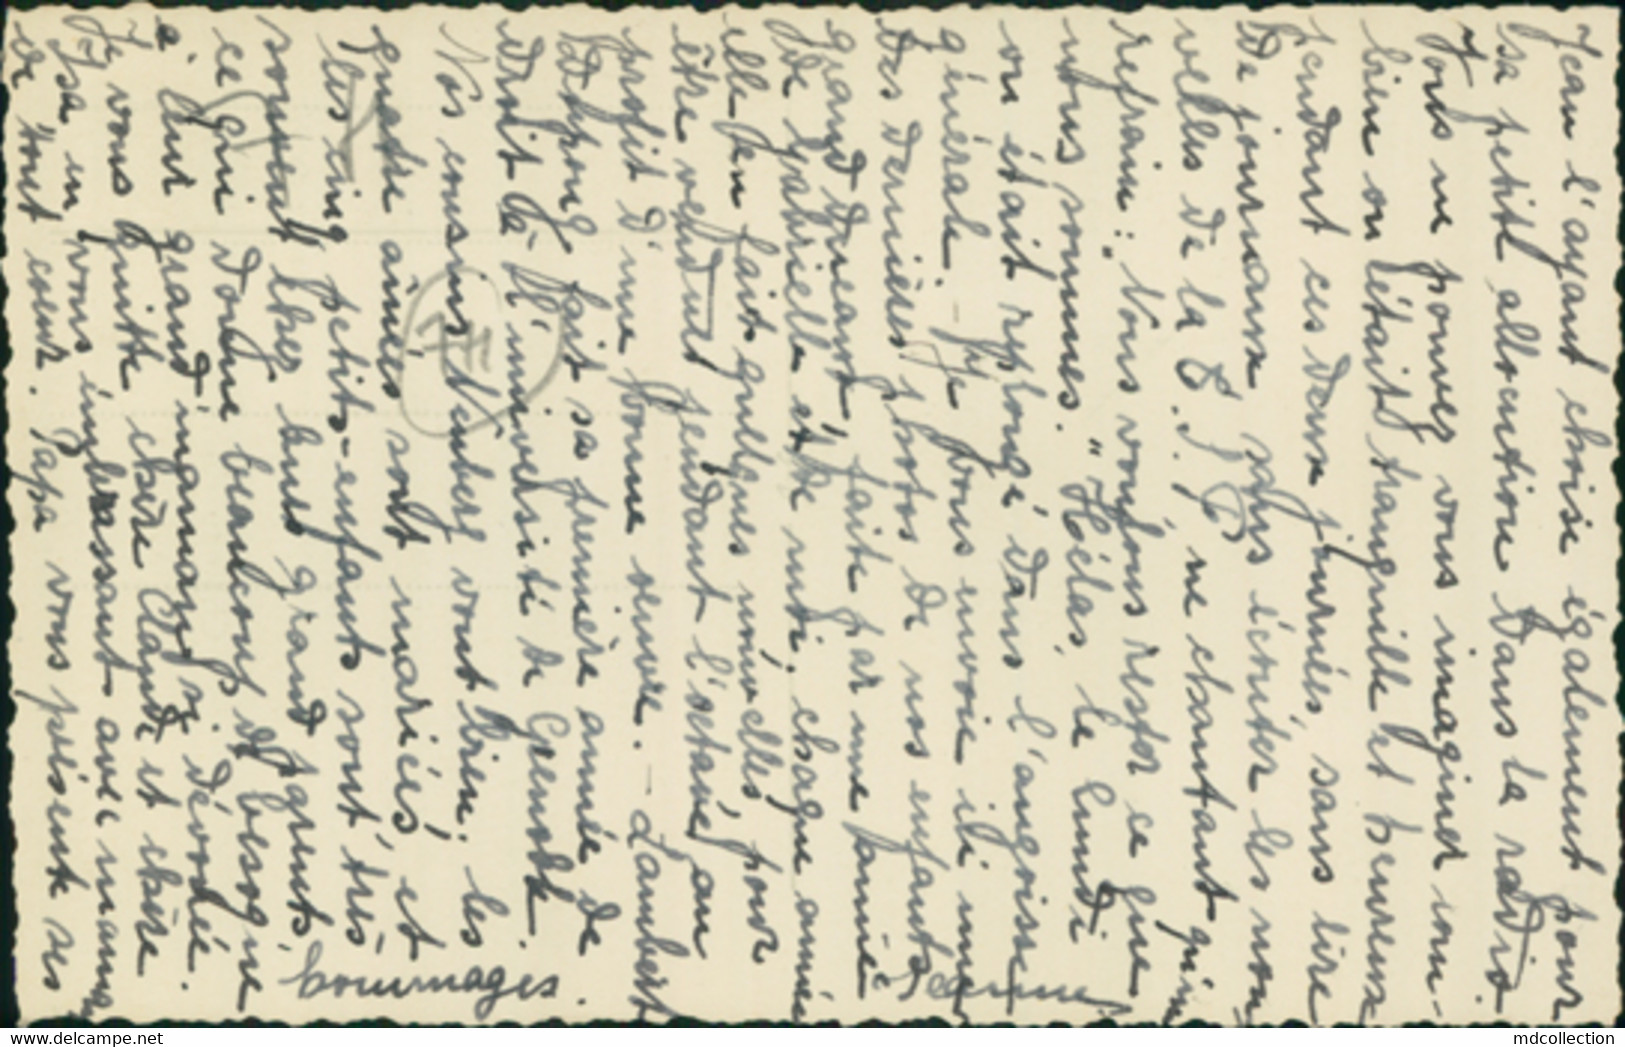 Jean l'ayant choisi également pour
sa petite allocution dans la radio.
Vous ne pouvez vous imaginer com-
bien on était tranquille et heureux
pendant ces deux journées, sans lire
de journaux plus écouter les nou-
velles de la T.S.F., ne chantant qu'un
refrain: "Nous voulons rester ce que
nous sommes." Hélas, le lundi
on était replongé dans l'angoisse
générale. - Je vous envoie ici une
des dernières photos de nos enfants
grandducaux, faite par une
de Gabrielle et de moi. Chaque année
elle en fait quelques nouvelles pour
être vendues pendant l'octave, au
profit d'une bonne œuvre. - Lambert
Dupong fait sa première année de
droit à l'université de Grenoble.
Nos cousins Neuberg vont bien. Les
quatre aînés sont mariés et
les cinq petits-enfants sont très
souvent chez leurs grand'parents,
ce qui donne beaucoup de besogne
à leur grand'maman si dévouée.
Je vous quitte chère Claude et chère
Ysa en vous embrassant avec maman
de tout cœur. Papa vous présente ses
hommages.
Jeanne
74
mdcollection